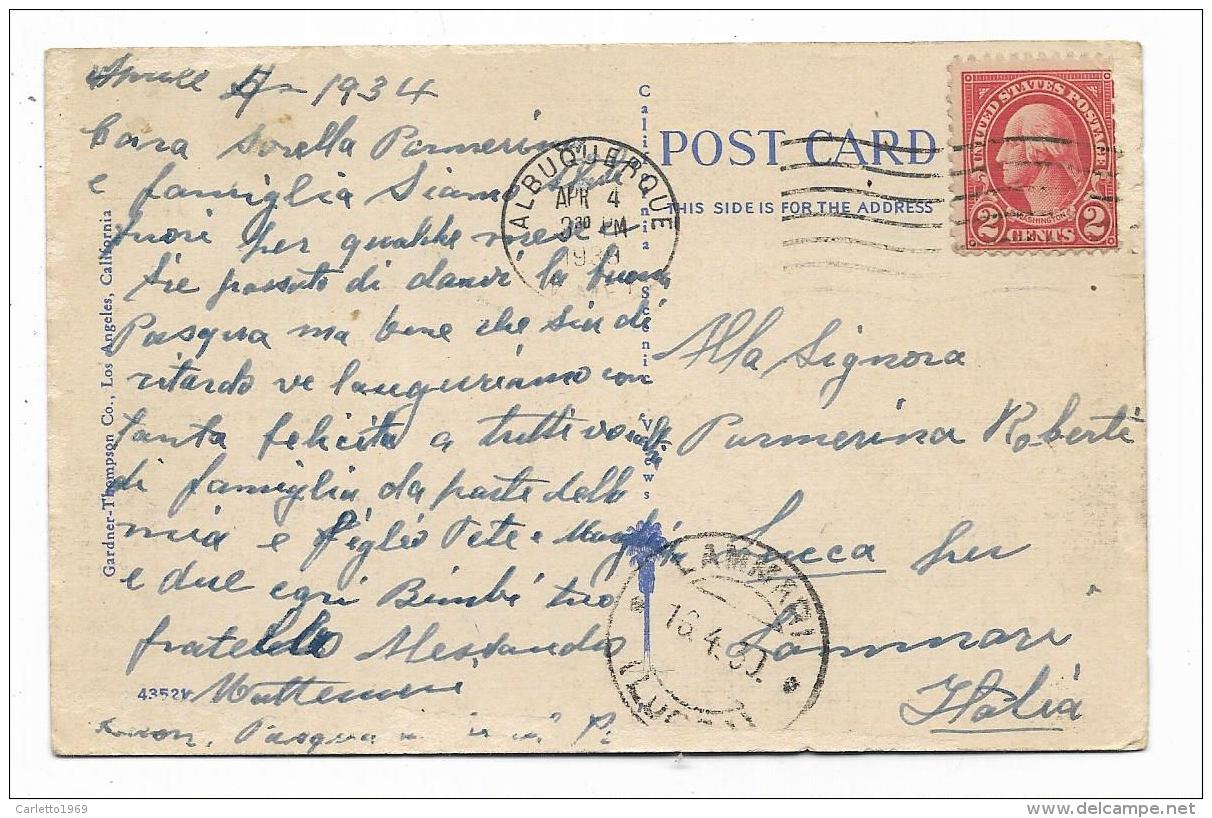 4 1934
Cara Sorella Parmerina
e famiglia Siamo
fuori per qualche mese
passato di darvi la buona
Pasqua ma bene che sia di
ritardo ve l'auguriamo con
tanta felicita a tutti voi altri
di famiglia da parte della
mia e figlio Pete e
e due cari Bimbi tuo
fratello Alessandro
Pasqua
POST CARD
THIS SIDE IS FOR THE ADDRESS
California Scenic Views
Gardner-Thompson Co., Los Angeles, California
4352
ALBUQUERQUE
APR 4
330 PM
UNITED STATES POSTAGE
WASHINGTON
2 CENTS 2
Alla Signora
Parmerina Roberti
Lucca per
Lammari
Italia
LAMMARI
16.4.
(LUCCA)
Carletto1969
delcampe.net